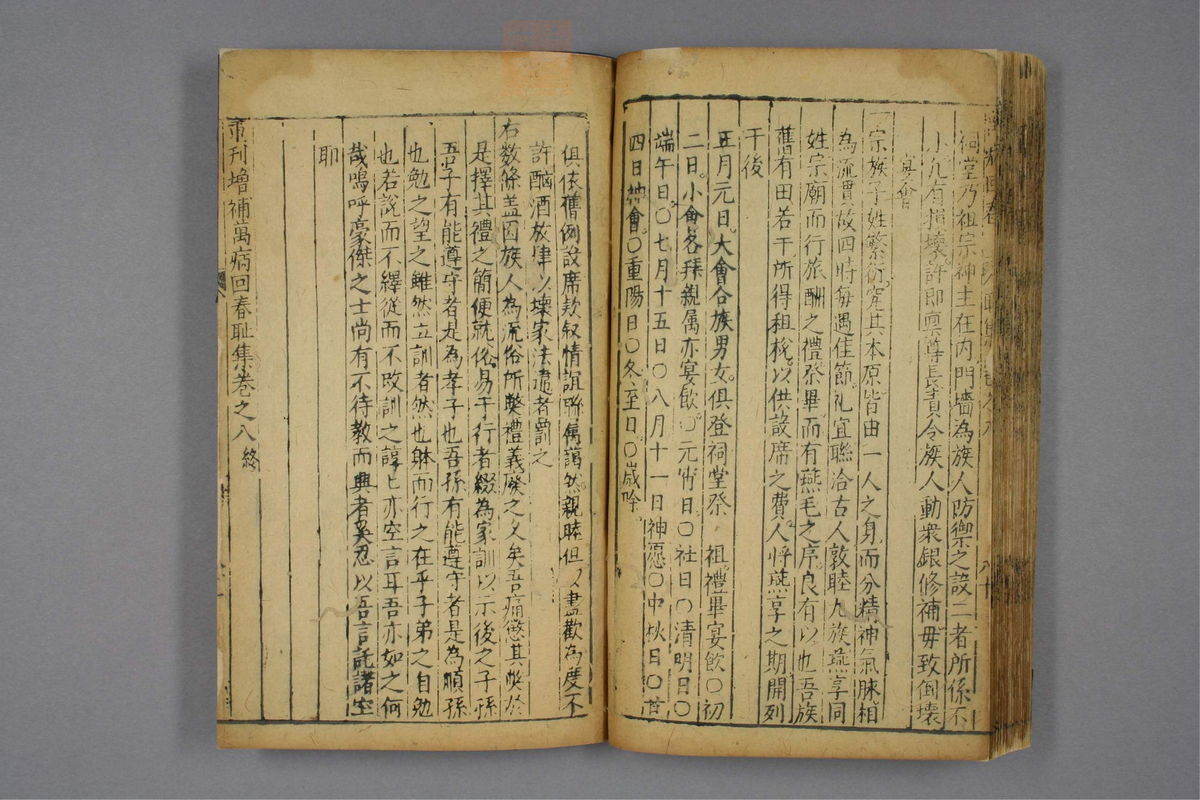 祠堂乃祖宗神主在內門墻為族人防禦之設二者所係不
小凡有損壞許即稟尊長責令族人動衆銀修補毋致倒壞
宴會
一宗族子姓繁衍究其本原皆由一人之身而分精神氣脉相
為流貫故四時每遇佳節礼宜聯洽古人敦睦九族燕享同
姓宗廟而行旅酬之禮祭畢而有燕毛之序良有以也吾族
舊有田若干所得租稅以供設席之費人將燕享之期開列
于後
正月元日大會合族男女俱登祠堂祭 祖禮畢宴飲〇初
二日小會各拜親属亦宴飲〇元宵日〇社日〇清明日〇
端午日〇七月十五日〇八月十一日神愿〇中秋日〇廿
四日神會〇重陽日〇冬至日〇歲除
俱依舊例設席欵叙情誼聯属藹然親睦但以盡歡為度不
許酗酒放肆以壞家法違者罰之
右数條盖因族人為流俗所弊禮義廢之久矣吾痛懲其弊於
是擇其禮之簡便就俗易于行者綴為家訓以示後之子孫
吾子有能遵守者是為孝子也吾孫有能遵守者是為順孫
也勉之望之雖然立訓者然也躰而行之在乎子弟之自勉
也若說而不繹從而不改訓之諄〻亦空言耳吾亦如之何
哉嗚呼豪傑之士尚有不待教而興者奚忍以吾言託諸空
耶
重刊增補萬病回春耻集卷之八終